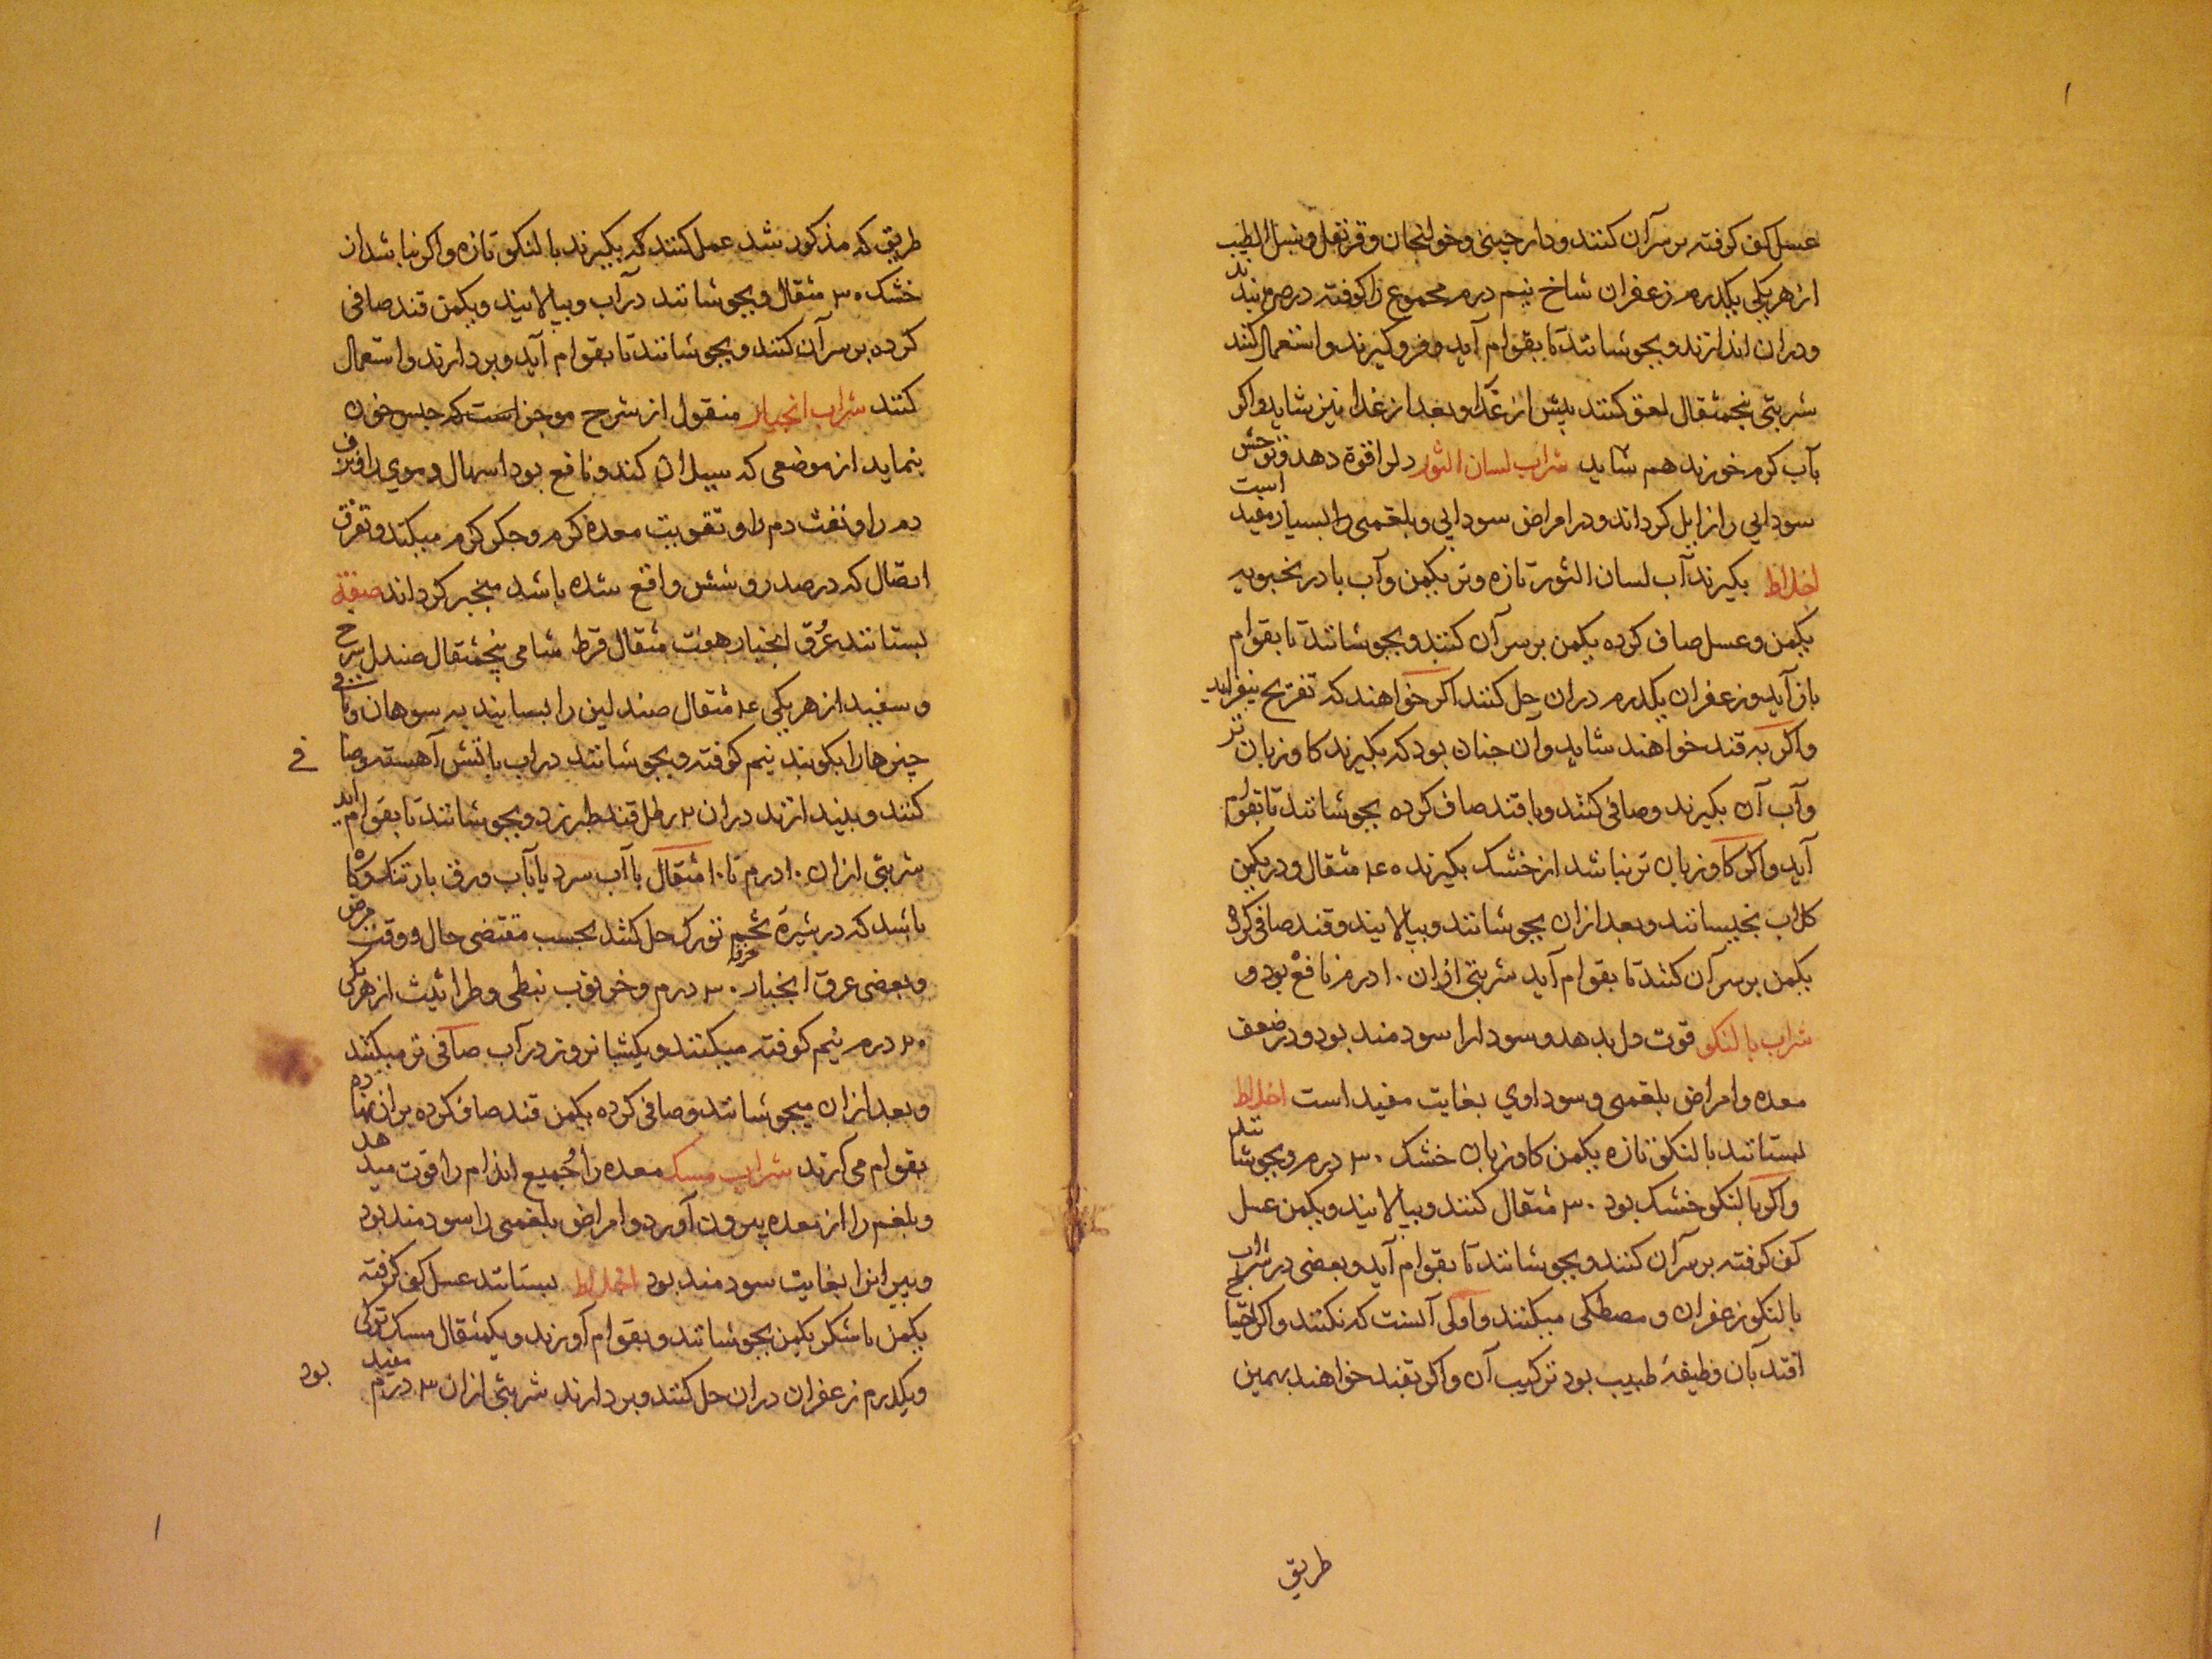 عسل کف کرفته بر سر آن کنند و دارچینی و خولنجان و قرنفل و سنبل الطیب
از هر یکی یکدرم زعفران شاخ نیم درم مجموع را کوفته در صره بندند
و در ان اندازند و بجوشانند تا بقوام آید و فرو کیرند و استعمال کنند
شربتی پنجمثقال لعق کنند پیش از غدا و بعد از غدا نیز شاید و اکر
بآب کرم خورند هم شاید شراب لسان الثور دلرا قوة دهد و توحش
سودایی را زایل کرداند و در امراض سودایی و بلغمی را بسیار مفید است
اخلاط بکیرند آب لسان الثور تازه و تر یکمن و آب بادرنجبویه
یکمن و عسل صاف کرده یکمن بر سر آن کنند و بجوشانند تا بقوام
باز آید و زعفران یکدرم دران حل کنند اکر خواهند که تفریح بیفزاید
و اکر به قند خواهند شاید و آن چنان بود که بکیرند کاوزبان تر
و آب آن بکیرند و صافی کنند و با قند صاف کرده بجوشانند تا بقوام
آید و اکر کاوزبان تر نباشد از خشک بکیرند ٤٥ مثقال و در یکمن
کلاب بخیسانند و بعد از ان بجوشانند و بپالایند و قند صافی کرده
یکمن بر سر آن کنند تا بقوام آید شربتی ازان ١٠ درم نافع بود و
شراب بالنکو قوت دل بدهد و سودا را سودمند بود و در ضعف
معده و امراض بلغمی و سوداوی بغایت مفید است اخلاط
بستانند بالنکو تازه یکمن کاوزبان خشک ٣٠ درم و بجوشانند
و اکر بالنکو خشک بود ٣٠ مثقال کنند و بپالایند و یکمن عسل
کف کرفته بر سر آن کنند و بجوشانند تا بقوام آید و بعضی در شراب
بالنکو زعفران و مصطکی میکنند و اولی آنست که نکنند و اکر احتیاج
افتد بآن وظیفهٔ طبیب بود ترکیب آن و اکر بقند خواهند بهمین
طریق
طریق که مذکور شد عمل کنند که بکیرند بالنکو تازه و اکر نباشد از
خشک ٣٠ مثقال و بجوشانند در آب و بپالایند و یکمن قند صافی
کرده بر سر آن کنند و بجوشانند تا بقوام آید و بردارند و استعمال
کنند شراب انجبار منقول از شرح موجز است که حبس خون
بنماید از موضعی که سیلان کند و نافع بود اسهال دموی را و نزف
دم را و نفث دم را و تقویت معده کرم و جکر کرم میکند و تفرق
اتصال که در صدر و شش واقع شده باشد منجبر کرداند صفة
بستانند عُرَق انجبار هفت مثقال قرط شامی پنجمثقال صندل سرخ
و سفید از هر یکی ٤ مثقال صندلین را بسایند به سوهان و باقی
چیزها را بکوبند نیم کوفته و بجوشانند در آب باتش آهسته و صافی
کنند و بیندازند دران ٢ رطل قند طبرزد و بجوشانند تا بقوام اید
شربتی ازان ١٠ درم تا ١٠ مثقال با آب سرد یا بآب ورق بارتنک و کا
باشد که در شیرهٔ تخم تورک خرفه حل کنند بحسب مقتضی حال و وقت مرض
و بعضی عرق انجبار ٣٠ درم و خرنوب نبطی و طراثیث از هر یکی
٢٠ درم نیم کوفته میکنند و یکشبانروز در آب صافی تر میکنند
و بعد از ان میجوشانند و صافی کرده یکمن قند صاف کرده بران نهاده
بقوام می آرند شراب مسک معده را و جمیع اندام را قوت میدهد
و بلغم را از معده بیرون آورد و امراض بلغمی را سودمند بود
و پیرانرا بغایت سودمند بود اخلاط بستانند عسل کف کرفته
یکمن با شکر یکمن بجوشانند و بقوام آورند و یکمثقال مسک ترکی
و یکدرم زعفران دران حل کنند و بردارند شربتی ازان ٣ درم مفید بود